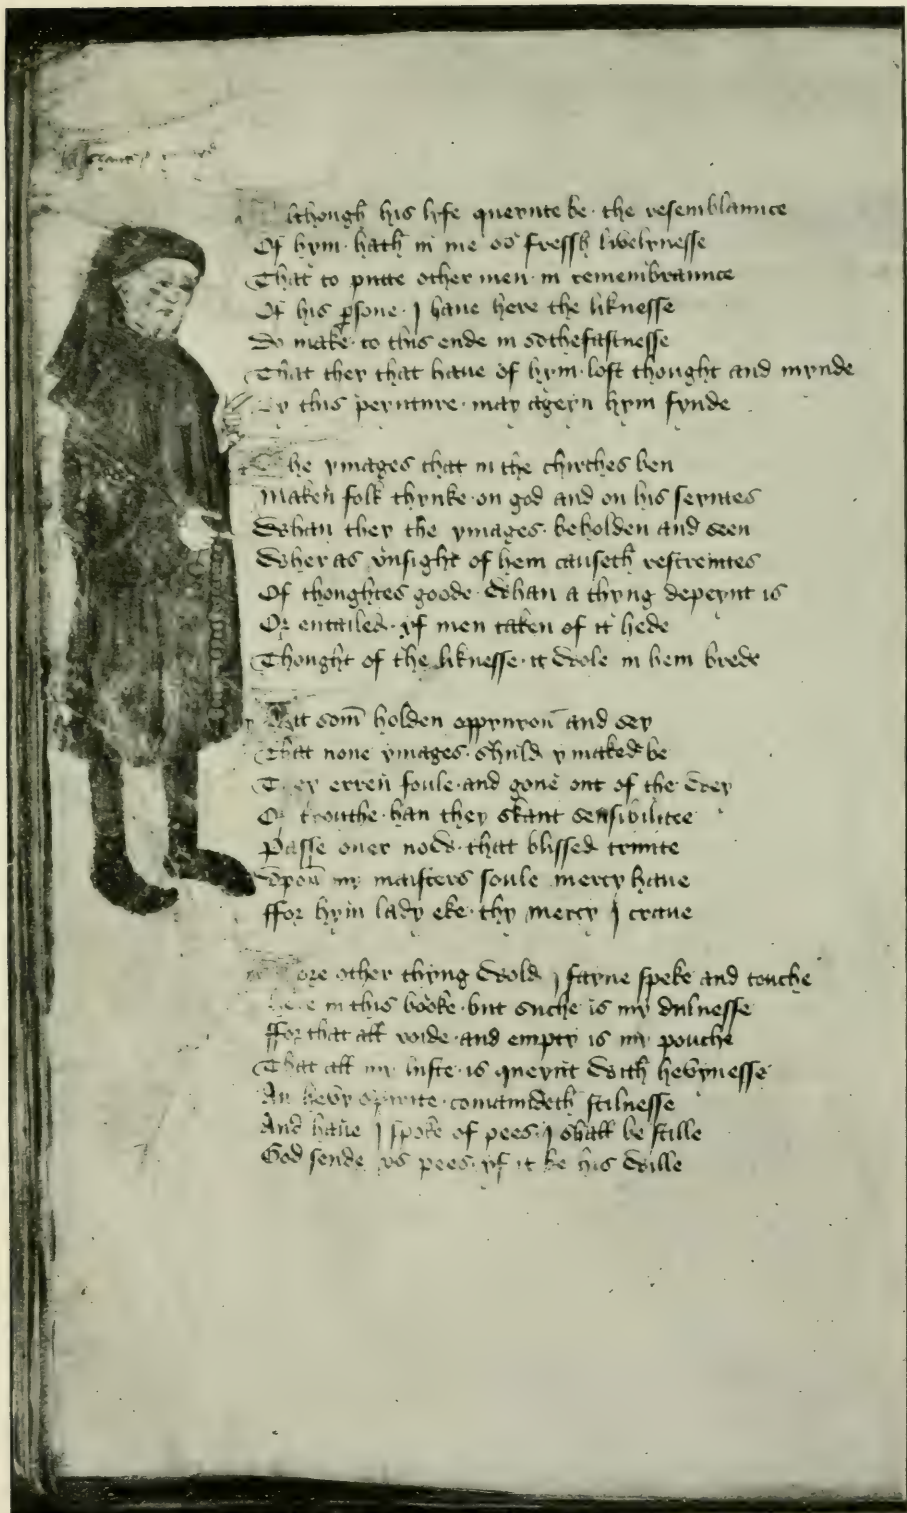 Although his lyfe queynte be · the resemblaunce
Of hym · hath in me so fressh liuelynesse
That to putte other men · in remembraunce
Of his psone · I haue here the liknesse
Do make · to this ende in sothefastnesse
That they that haue of hym · lost thought and mynde
By this peynture · may ageyn hym fynde
The ymages that in the chirches ben
Maken folk thynke · on god and on his seyntes
Whan they the ymages · beholden and seen
Wher as vnsight of hem causeth restreintes
Of thoughtes goode · Whan a thyng depeynt is
Or entailed · yf men taken of it hede
Thought of the liknesse · it wole in hem brede
Yit som holden oppynyon and sey
That none ymages · shuld ymaked be
They erren foule · and gone out of the wey
Of trouthe · han they skant sensibilitee
Passe ouer now · that blissed trinite
Vpon my maisters soule mercy haue
ffor hym lady eke · thy mercy I craue
More other thyng wold I fayne speke and touche
Here in this booke · but suche is my dulnesse
ffor that all voide · and empty is my pouche
That all my luste · is queynt with hevynesse
An hevy spirite · comaundeth stilnesse
And haue I spoke of pees · I shall be stille
God sende vs pees · yf it be his wille